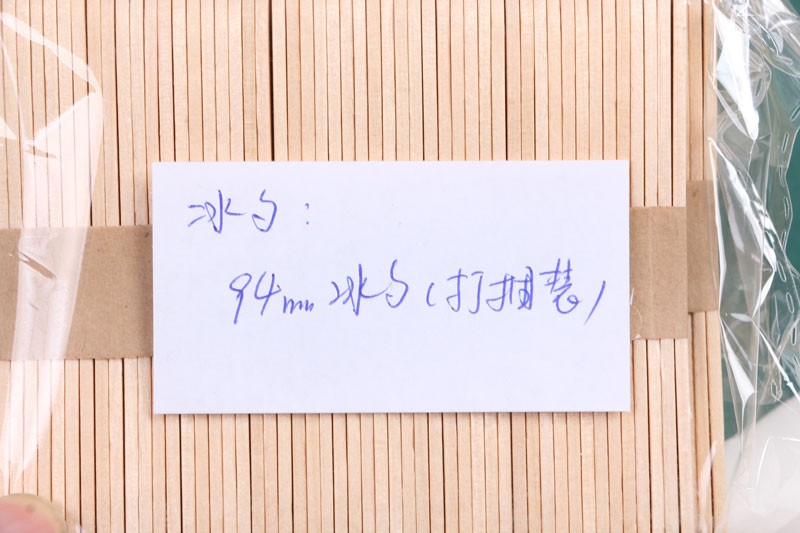 冰勺:
94mm冰勺(打捆装)